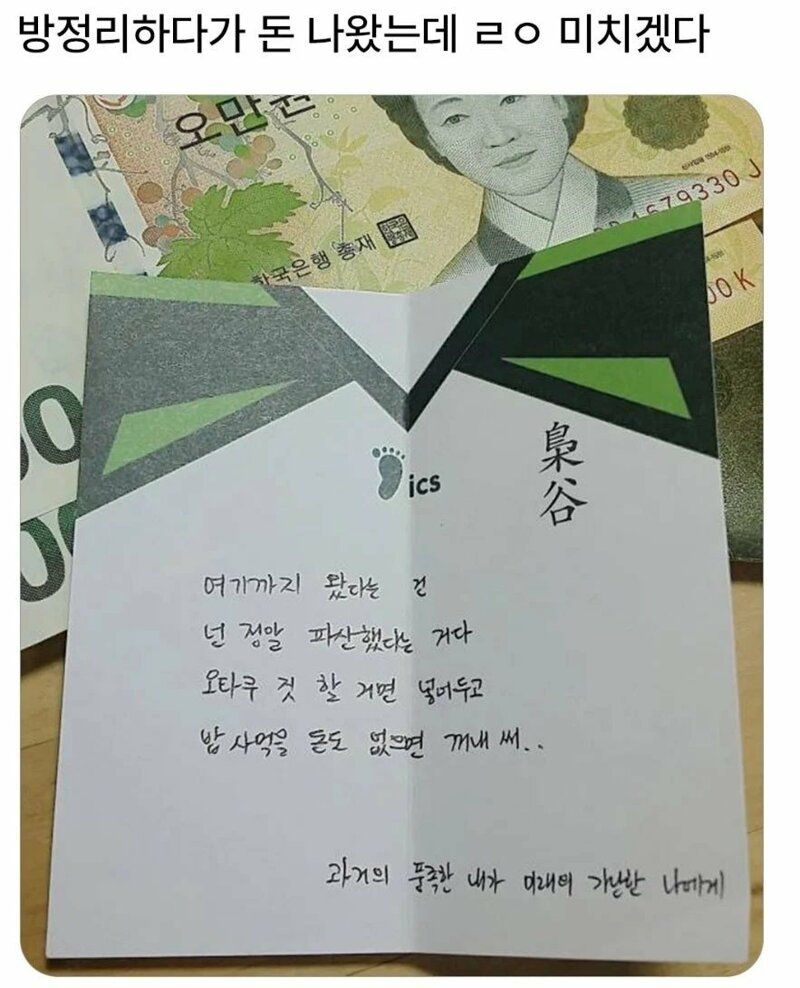 방정리하다가 돈 나왔는데 ㄹㅇ 미치겠다
오만원
한국은행 총재
1679330 J
00K
00
00
梟谷
ics
여기까지 왔다는 건
넌 정말 파산했다는 거다
오타쿠 짓 할 거면 넣어두고
밥 사먹을 돈도 없으면 꺼내 써..
과거의 풍족한 내가 미래의 가난한 나에게